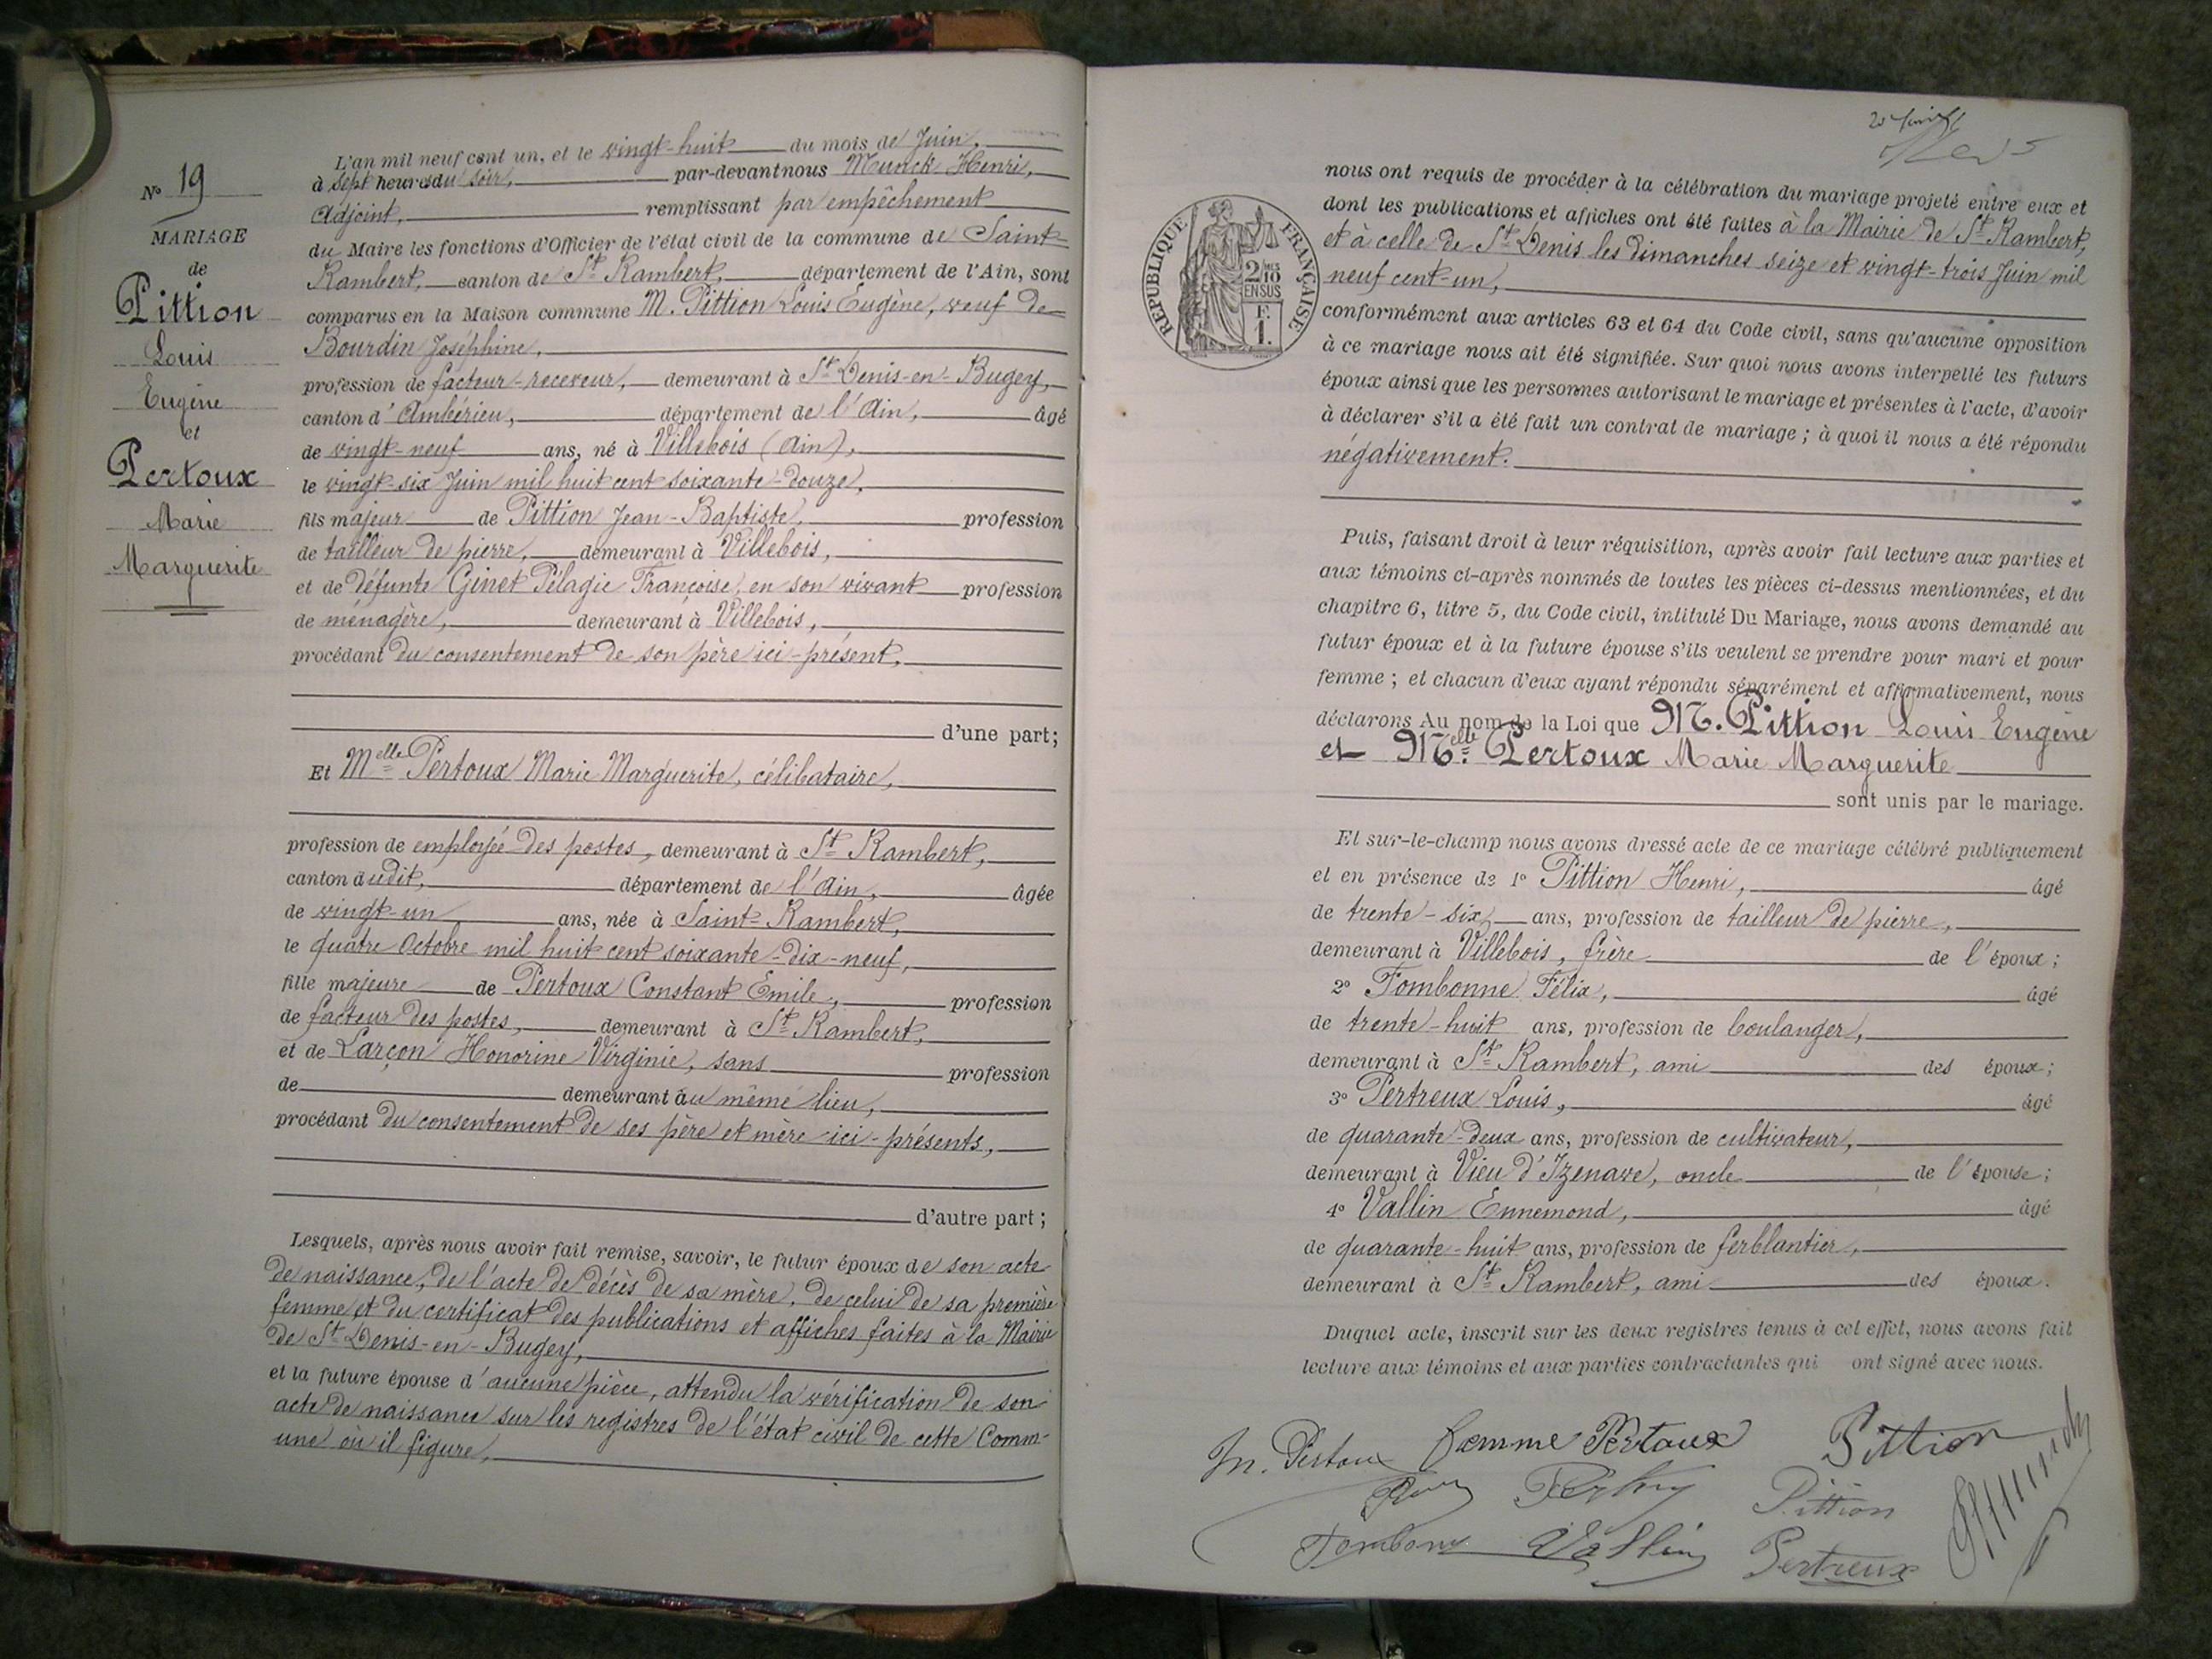 N° 19
MARIAGE
de
Pittion
Louis
Eugène
et
Pertoux
Marie
Marguerite
L'an mil neuf cent un, et le vingt-huit du mois de Juin,
à sept heures du soir, par-devant nous Munck Henri,
Adjoint, remplissant par empêchement
du Maire les fonctions d'Officier de l'état civil de la commune de Saint-
Rambert, canton de St Rambert, département de l'Ain, sont
comparus en la Maison commune M. Pittion Louis Eugène, veuf de
Bourdin Joséphine,
profession de facteur-receveur, demeurant à St Denis-en-Bugey,
canton d'Ambérieu, département de l'Ain, âgé
de vingt-neuf ans, né à Villebois (Ain),
le vingt-six Juin mil huit cent soixante-douze,
fils majeur de Pittion Jean-Baptiste, profession
de tailleur de pierre, demeurant à Villebois,
et de défunte Ginet Pélagie Françoise, en son vivant profession
de ménagère, demeurant à Villebois,
procédant du consentement de son père ici-présent,
d'une part;
Et Melle Pertoux Marie Marguerite, célibataire,
profession de employée des postes, demeurant à St Rambert,
canton dudit, département de l'Ain, âgée
de vingt-un ans, née à Saint-Rambert,
le quatre Octobre mil huit cent soixante-dix-neuf,
fille majeure de Pertoux Constant Emile, profession
de facteur des postes, demeurant à St Rambert,
et de Larçon Honorine Virginie, sans profession
de demeurant au même lieu,
procédant du consentement de ses père et mère ici-présents,
d'autre part;
Lesquels, après nous avoir fait remise, savoir, le futur époux de son acte
de naissance, de l'acte de décès de sa mère, de celui de sa première
femme et du certificat des publications et affiches faites à la Mairie
de St Denis-en-Bugey,
et la future épouse d'aucune pièce, attendu la vérification de son
acte de naissance sur les registres de l'état civil de cette Comm-
une où il figure,
RÉPUBLIQUE FRANÇAISE
2/10 EN SUS
F. 1.
nous ont requis de procéder à la célébration du mariage projeté entre eux et
dont les publications et affiches ont été faites à la Mairie de St Rambert,
et à celle de St Denis les dimanches seize et vingt-trois Juin mil
neuf cent-un,
conformément aux articles 63 et 64 du Code civil, sans qu'aucune opposition
à ce mariage nous ait été signifiée. Sur quoi nous avons interpellé les futurs
époux ainsi que les personnes autorisant le mariage et présentes à l'acte, d'avoir
à déclarer s'il a été fait un contrat de mariage; à quoi il nous a été répondu
négativement.
Puis, faisant droit à leur réquisition, après avoir fait lecture aux parties et
aux témoins ci-après nommés de toutes les pièces ci-dessus mentionnées, et du
chapitre 6, titre 5, du Code civil, intitulé Du Mariage, nous avons demandé au
futur époux et à la future épouse s'ils veulent se prendre pour mari et pour
femme; et chacun d'eux ayant répondu séparément et affirmativement, nous
déclarons Au nom de la Loi que M. Pittion Louis Eugène
et Melle Pertoux Marie Marguerite
sont unis par le mariage.
Et sur-le-champ nous avons dressé acte de ce mariage célébré publiquement
et en présence de 1° Pittion Henri, âgé
de trente-six ans, profession de tailleur de pierre,
demeurant à Villebois, frère de l'époux;
2° Tombonne Félix, âgé
de trente-huit ans, profession de boulanger,
demeurant à St Rambert, ami des époux;
3° Pertreux Louis, âgé
de quarante-deux ans, profession de cultivateur,
demeurant à Vieu d'Izenave, oncle de l'épouse;
4° Vallin Ennemond, âgé
de quarante-huit ans, profession de ferblantier,
demeurant à St Rambert, ami des époux.
Duquel acte, inscrit sur les deux registres tenus à cet effet, nous avons fait
lecture aux témoins et aux parties contractantes qui ont signé avec nous.
M. Pertoux femme Pertoux Pittion
Pittion
Vallin Pertreux